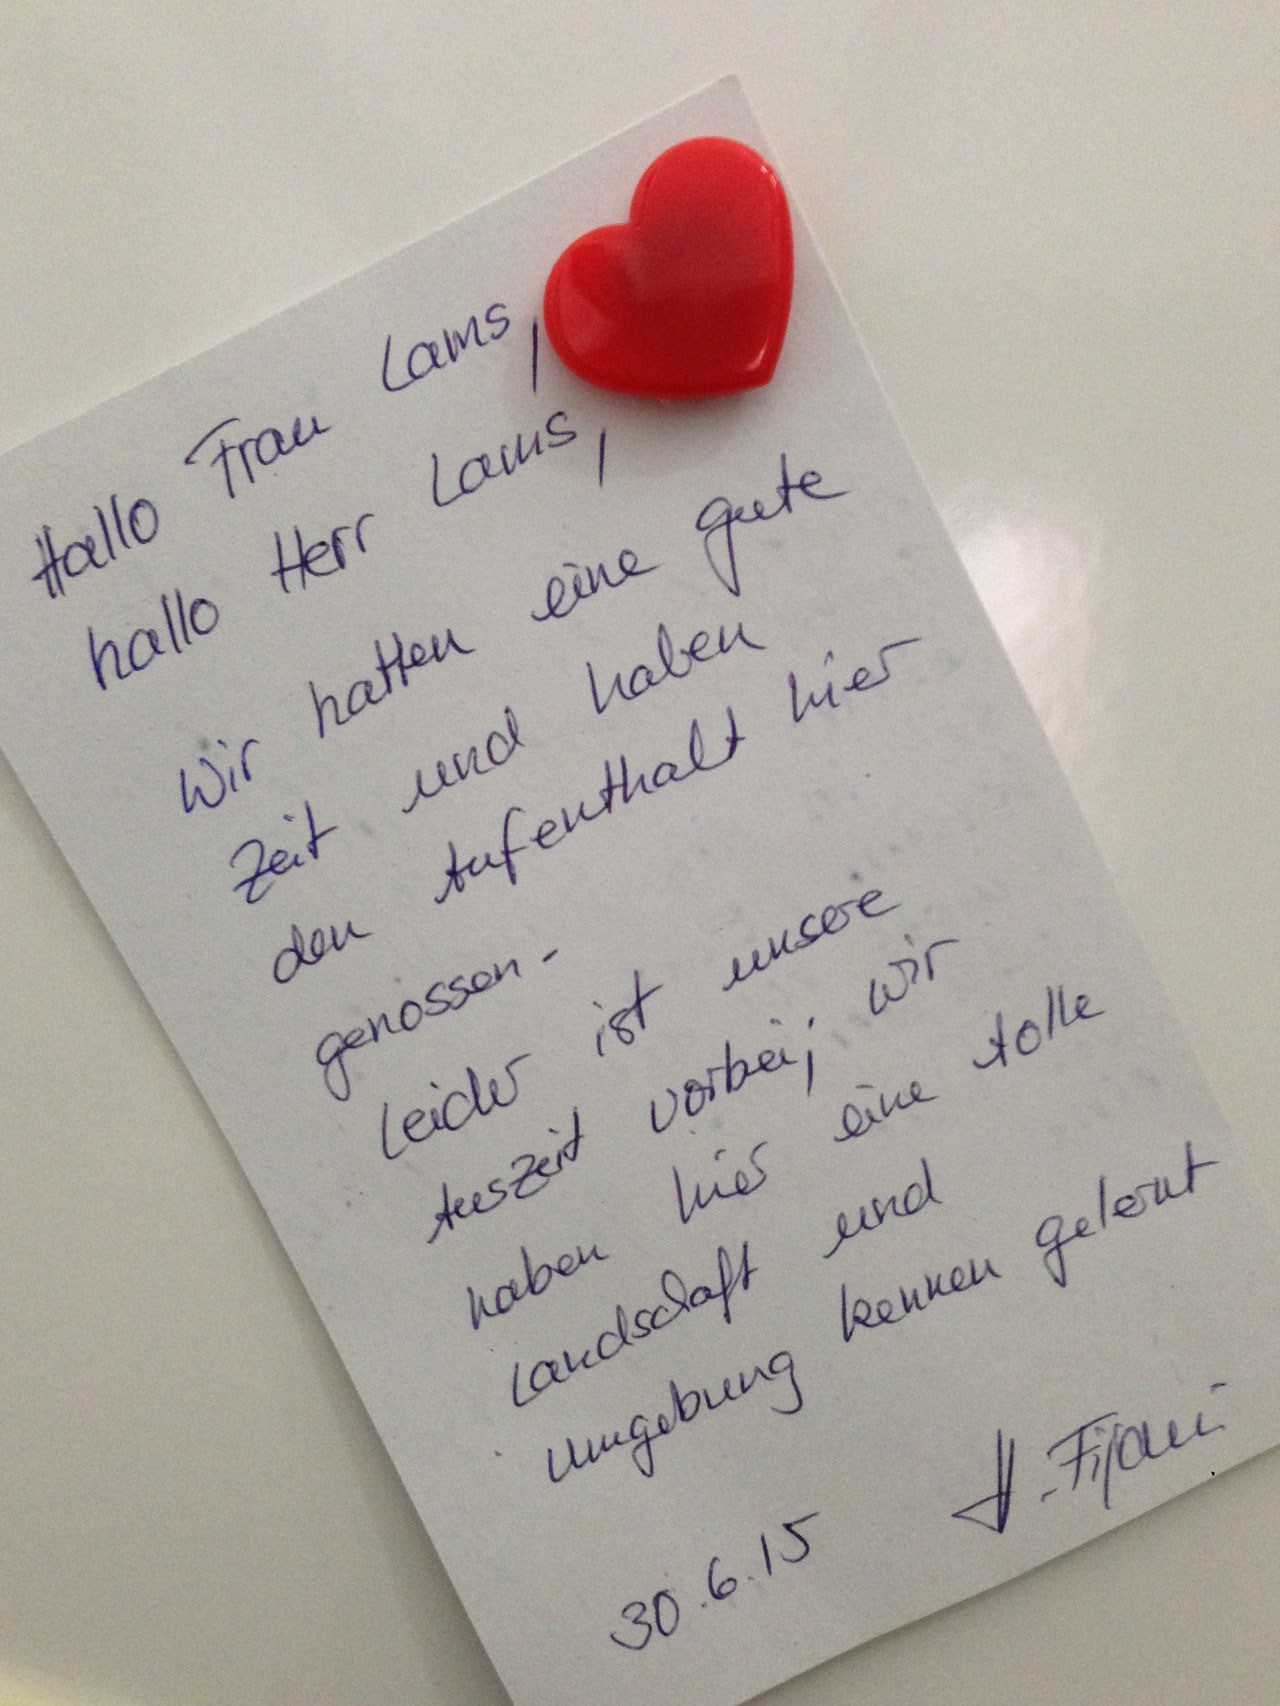 Hallo Frau Lams,
hallo Herr Lams,
Wir hatten eine gute
Zeit und haben
den Aufenthalt hier
genossen -
Leider ist unsere
Auszeit vorbei, wir
haben hier eine tolle
Landschaft und
Umgebung kennen gelernt
30.6.15